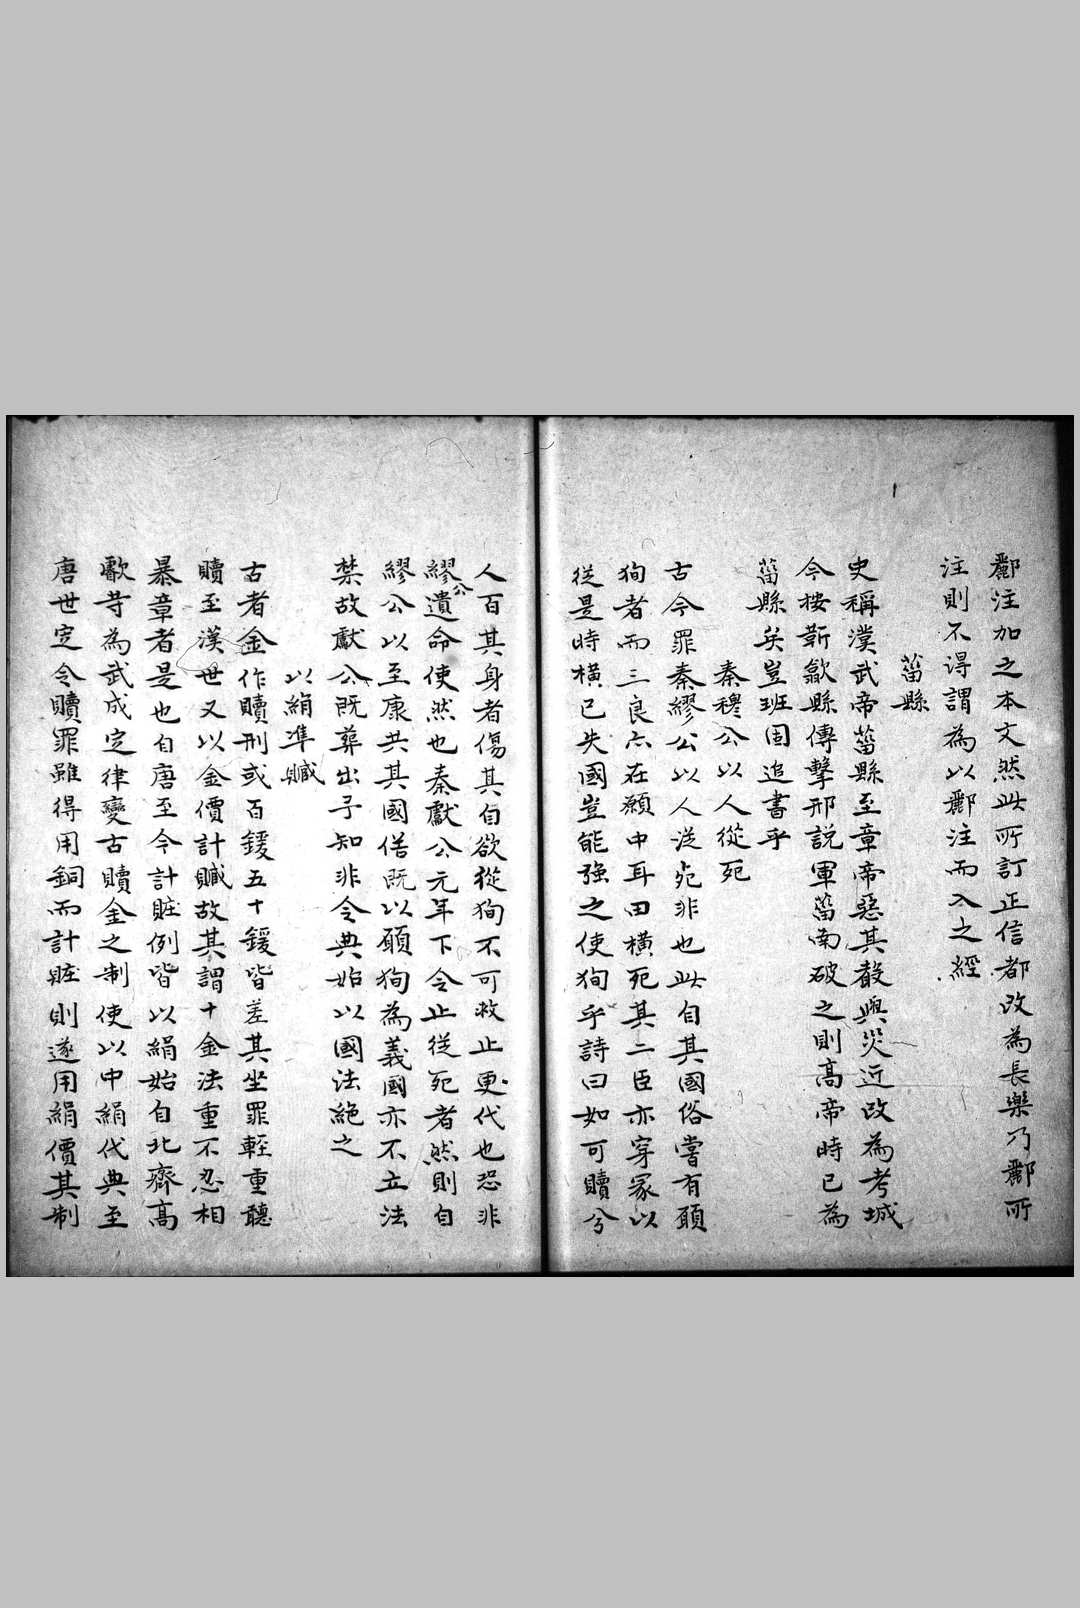 酈注加之本文然此所訂正信都改為長樂乃酈所
注則不得謂為以酈注而入之經
菑縣
史稱漢武帝菑縣至章帝惡其聲與災近改為考城
今按靳歙縣傳擊邢說軍菑南破之則高帝時已為
菑縣矣豈班固追書乎
秦穆公以人從死
古今罪秦繆公以人從死非也此自其國俗嘗有願
狥者而三良亦在願中耳田橫死其二臣亦穿冢以
從是時橫已失國豈能強之使狥乎詩曰如可贖兮
人百其身者傷其自欲從狥不可救止更代也恐非
繆公遺命使然也秦獻公元年下令止從死者然則自
繆公以至康共其國俗既以願狥為義國亦不立法
禁故獻公既葬出子知非令典始以國法絕之
以絹準贓
古者金作贖刑或百鍰五十鍰皆差其坐罪輕重聽
贖至漢世又以金價計贓故其謂十金法重不忍相
暴章者是也自唐至今計賍例皆以絹始自北齊高
歡昔為武成定律變古贖金之制使以中絹代典至
唐世定令贖罪雖得用銅而計賍則遂用絹價其制